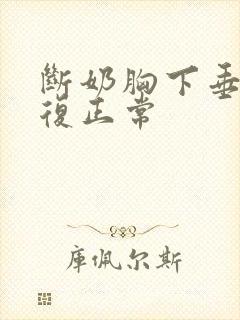 斷奶胸下垂
復正常
庫佩尔斯